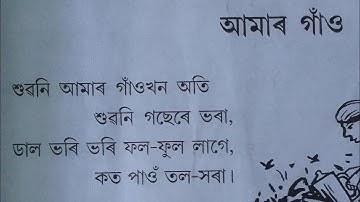 আমাৰ গাঁও
শুৱনি আমাৰ গাঁওখন অতি
শুৱনি গছেৰে ভৰা,
ডাল ভৰি ভৰি ফল-ফুল লাগে,
কত পাওঁ তল-সৰা।